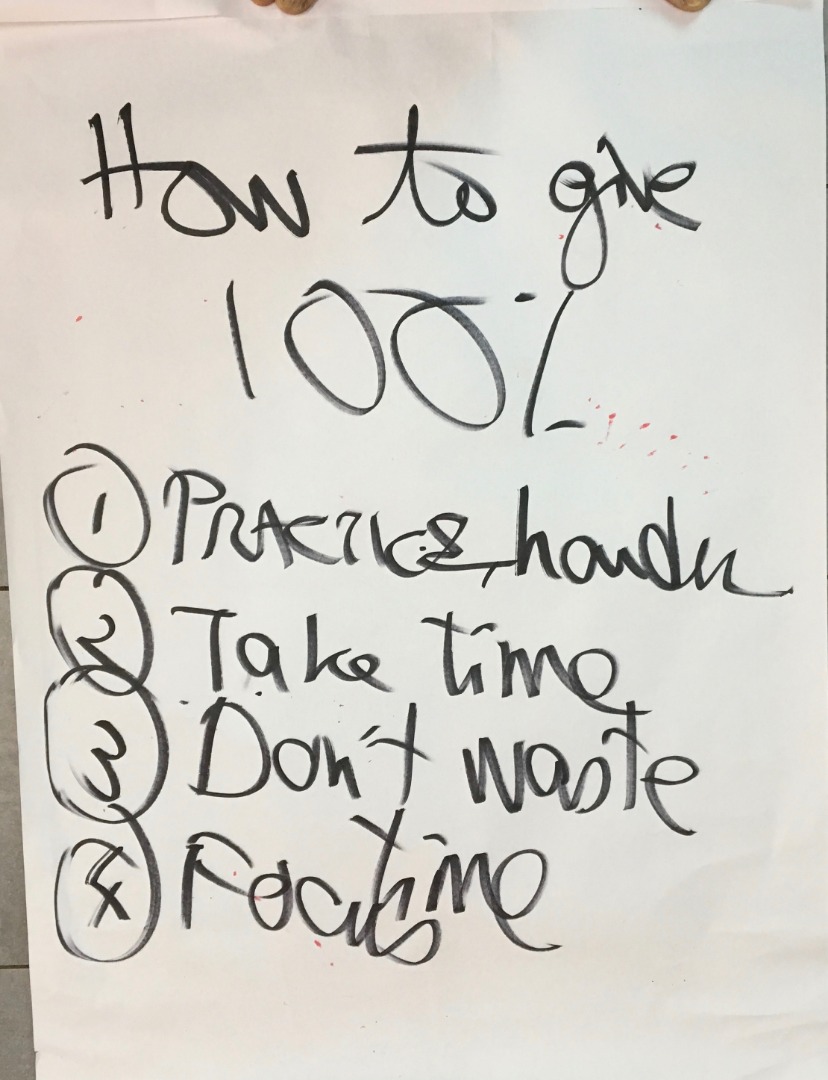 How to give
100%
1 PRACTICE, harder
2 Take time
3 Don't waste
time
4 Focus